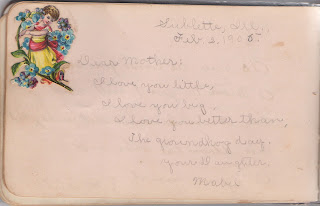 Sublette, Ill.,
Feb 2, 1905.
Dear Mother:
I love you little,
I love you big.
I love you better than,
The groundhog day.
your Daughter
Mabis